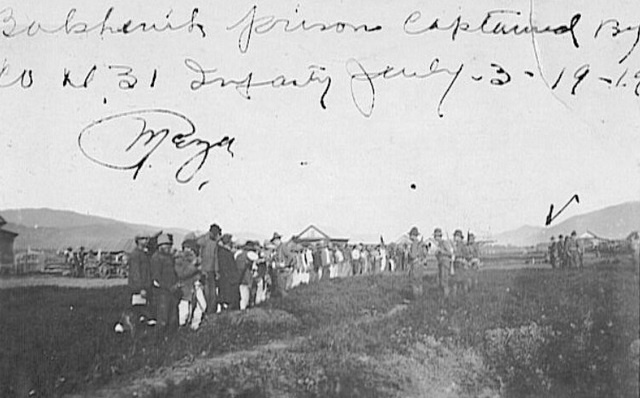 Bolshevik prison captained By
CO M, 31 Infasty July-3-19-19